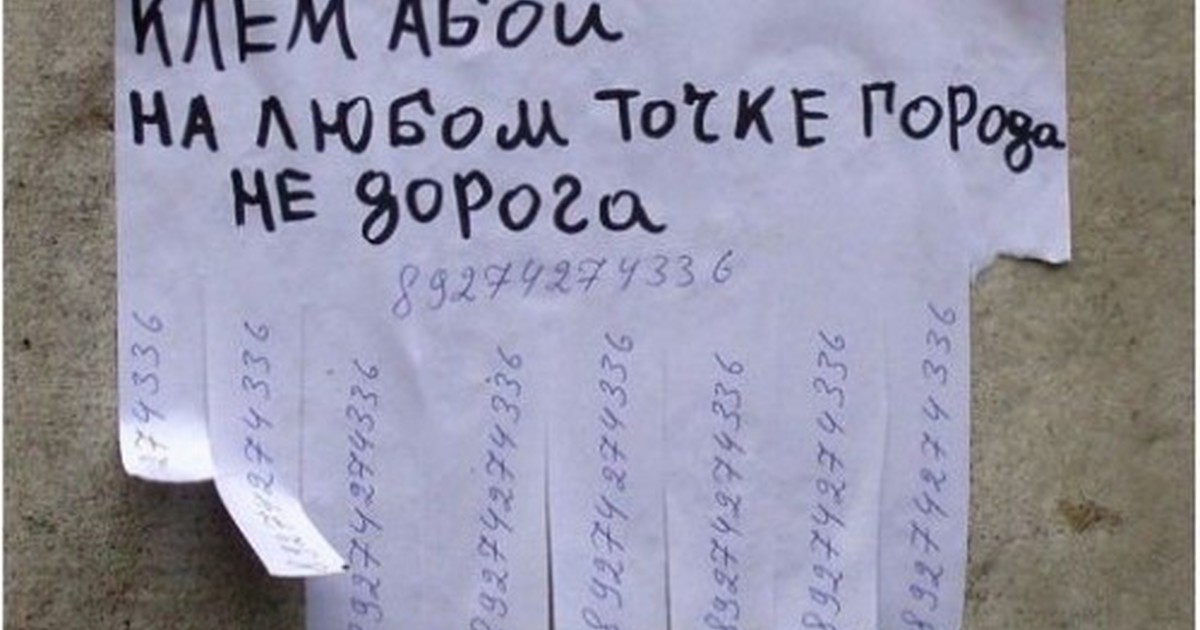 КЛЕМ АБОИ
НА ЛЮБОМ ТОЧКЕ ГОРОДА
НЕ ДОРОГА
89274274336
274336
274274336
89274274336
89274274336
89274274336
89274274336
89274274336
89274274336